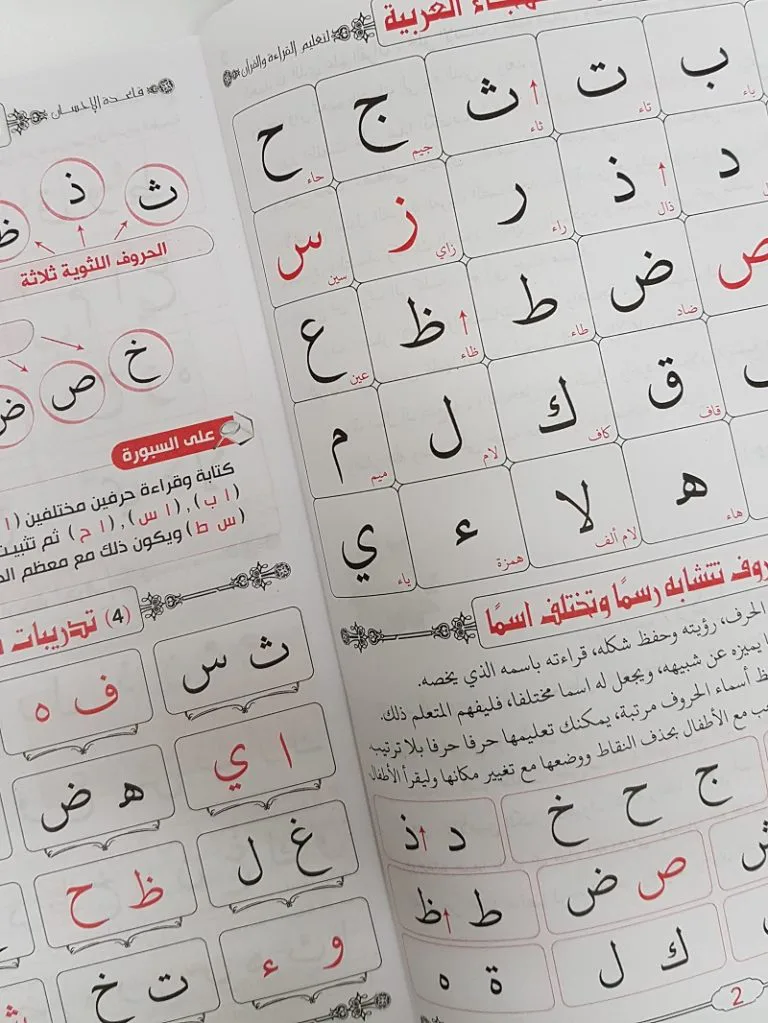 لتعليم القراءة والقرآن
العربية
ب ت ث ج ح
باء تاء ثاء جيم حاء
د ذ ر ز س
ذال راء زاي سين
ص ض ط ظ ع
ضاد طاء ظاء عين
ق ك ل م
قاف كاف لام ميم
ه لا ء ي
هاء لام ألف همزة ياء
تتشابه رسمًا وتختلف اسمًا
الحرف، رؤيته وحفظ شكله، قراءته باسمه الذي يخصه.
يميزه عن شبيهه، ويجعل له اسما مختلفا، فليفهم المتعلم ذلك.
أسماء الحروف مرتبة، يمكنك تعليمها حرفا حرفا بلا ترتيب
مع الأطفال بحذف النقاط ووضعها مع تغيير مكانها وليقرأ الأطفال
ج ح خ د ذ
ص ض ط ظ
ك ل ة ه
2
قاعدة الإحسان
ث ذ ظ
الحروف اللثوية ثلاثة
خ ص ض
على السبورة
كتابة وقراءة حرفين مختلفين (ا
(ا ب)، (ا س)، (ا ح) ثم تثبيت
(س ط) ويكون ذلك مع معظم
(4) تدريبات
ث س ف ه
ا ي ه ض
غ ل ظ ح
و ء ت خ